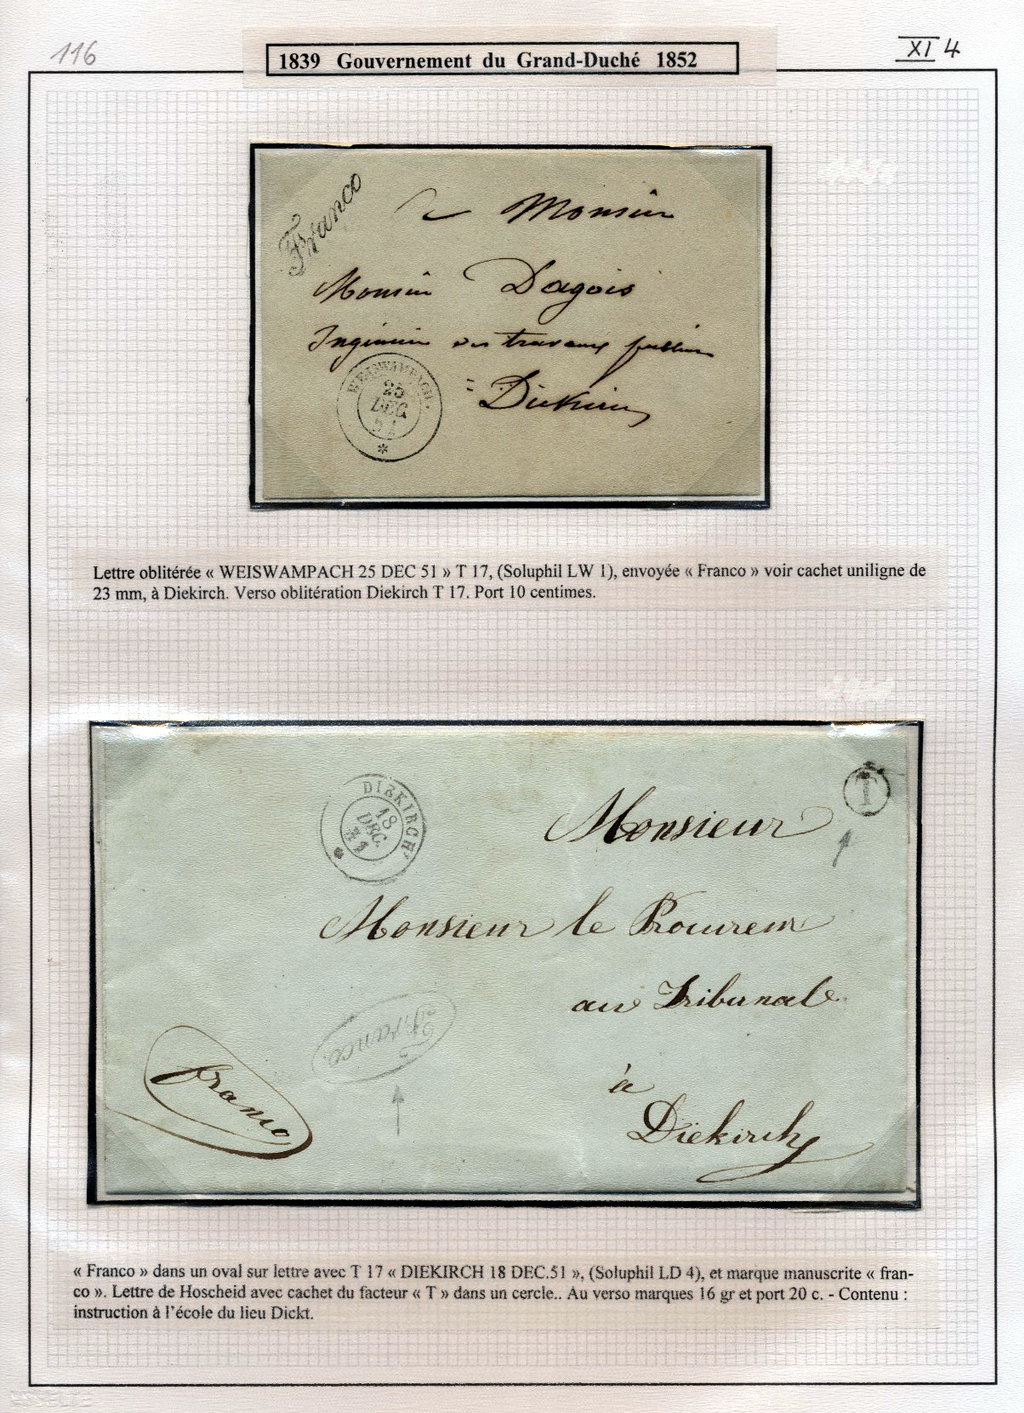 116
XI 4
1839 Gouvernement du Grand-Duché 1852
Franco
Monsieur
Monsieur Dagois
Ingénieur des travaux publics
Diekirch
WEISWAMPACH.
25
DEC.
51
Lettre oblitérée « WEISWAMPACH 25 DEC 51 » T 17, (Soluphil LW 1), envoyée « Franco » voir cachet uniligne de
23 mm, à Diekirch. Verso oblitération Diekirch T 17. Port 10 centimes.
DIEKIRCH
18
DEC.
51
T
Monsieur
Monsieur le Procureur
au Tribunale
Franco.
franco
à
Diekirch
« Franco » dans un oval sur lettre avec T 17 « DIEKIRCH 18 DEC.51 », (Soluphil LD 4), et marque manuscrite « fran-
co ». Lettre de Hoscheid avec cachet du facteur « T » dans un cercle.. Au verso marques 16 gr et port 20 c. - Contenu :
instruction à l'école du lieu Dickt.